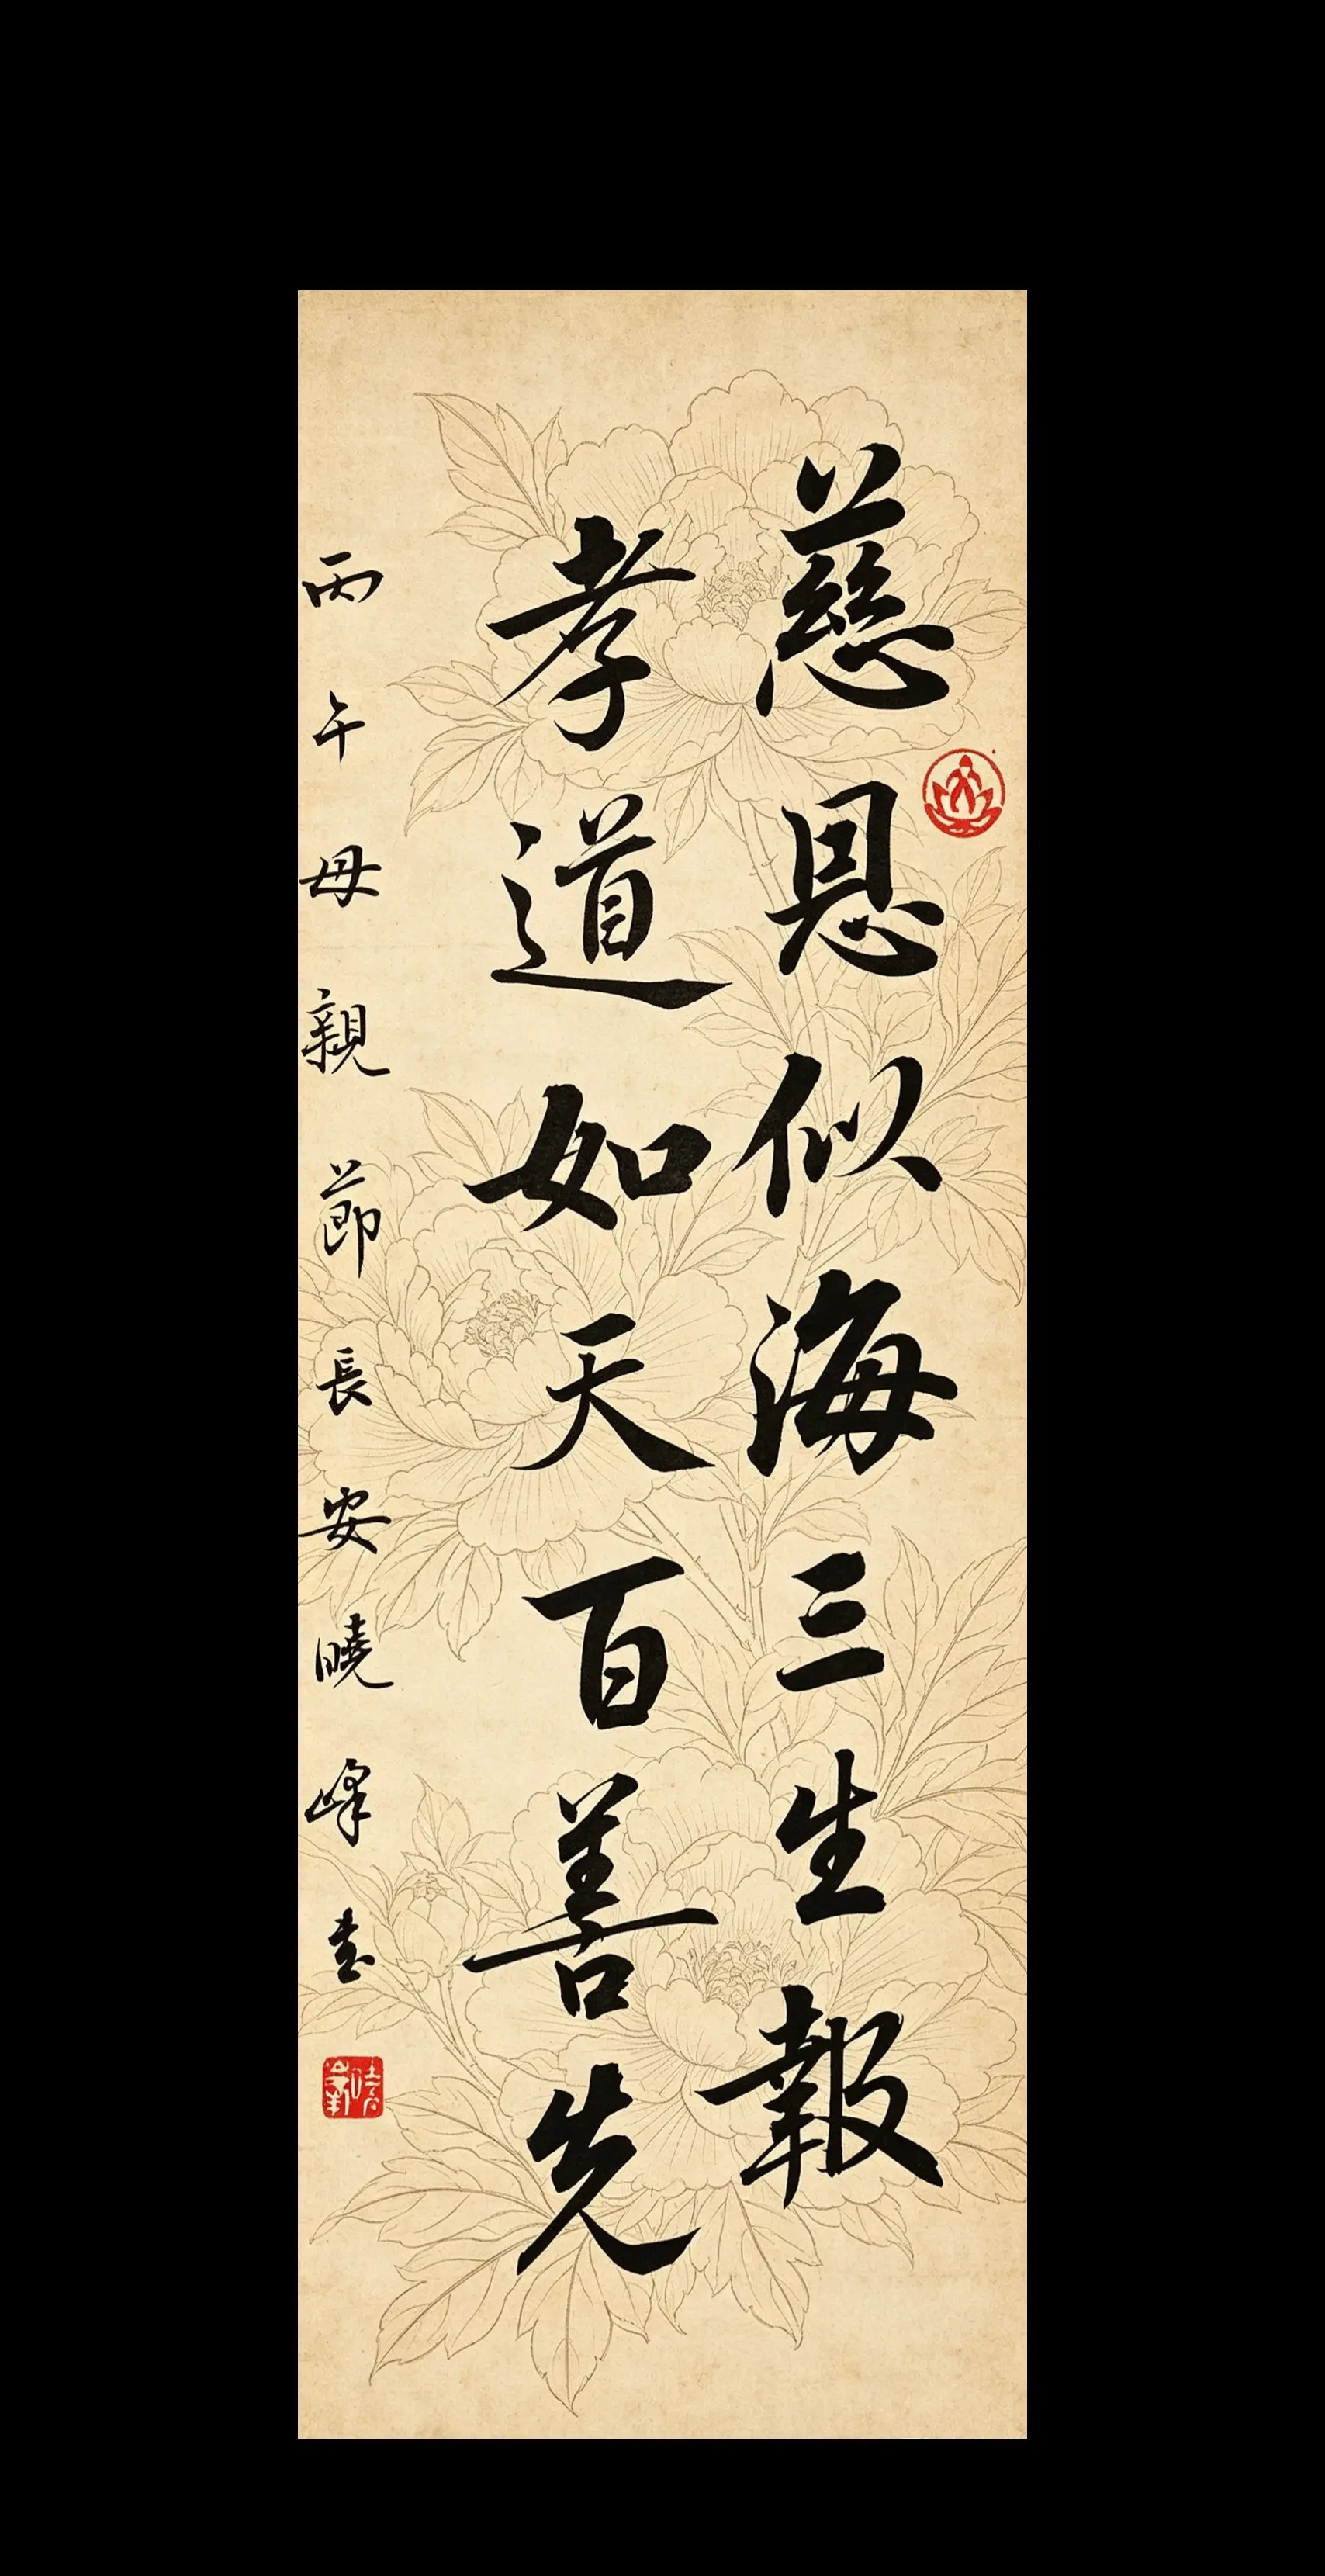 慈恩似海三生報
孝道如天百善先
丙午母親節長安曉峰書